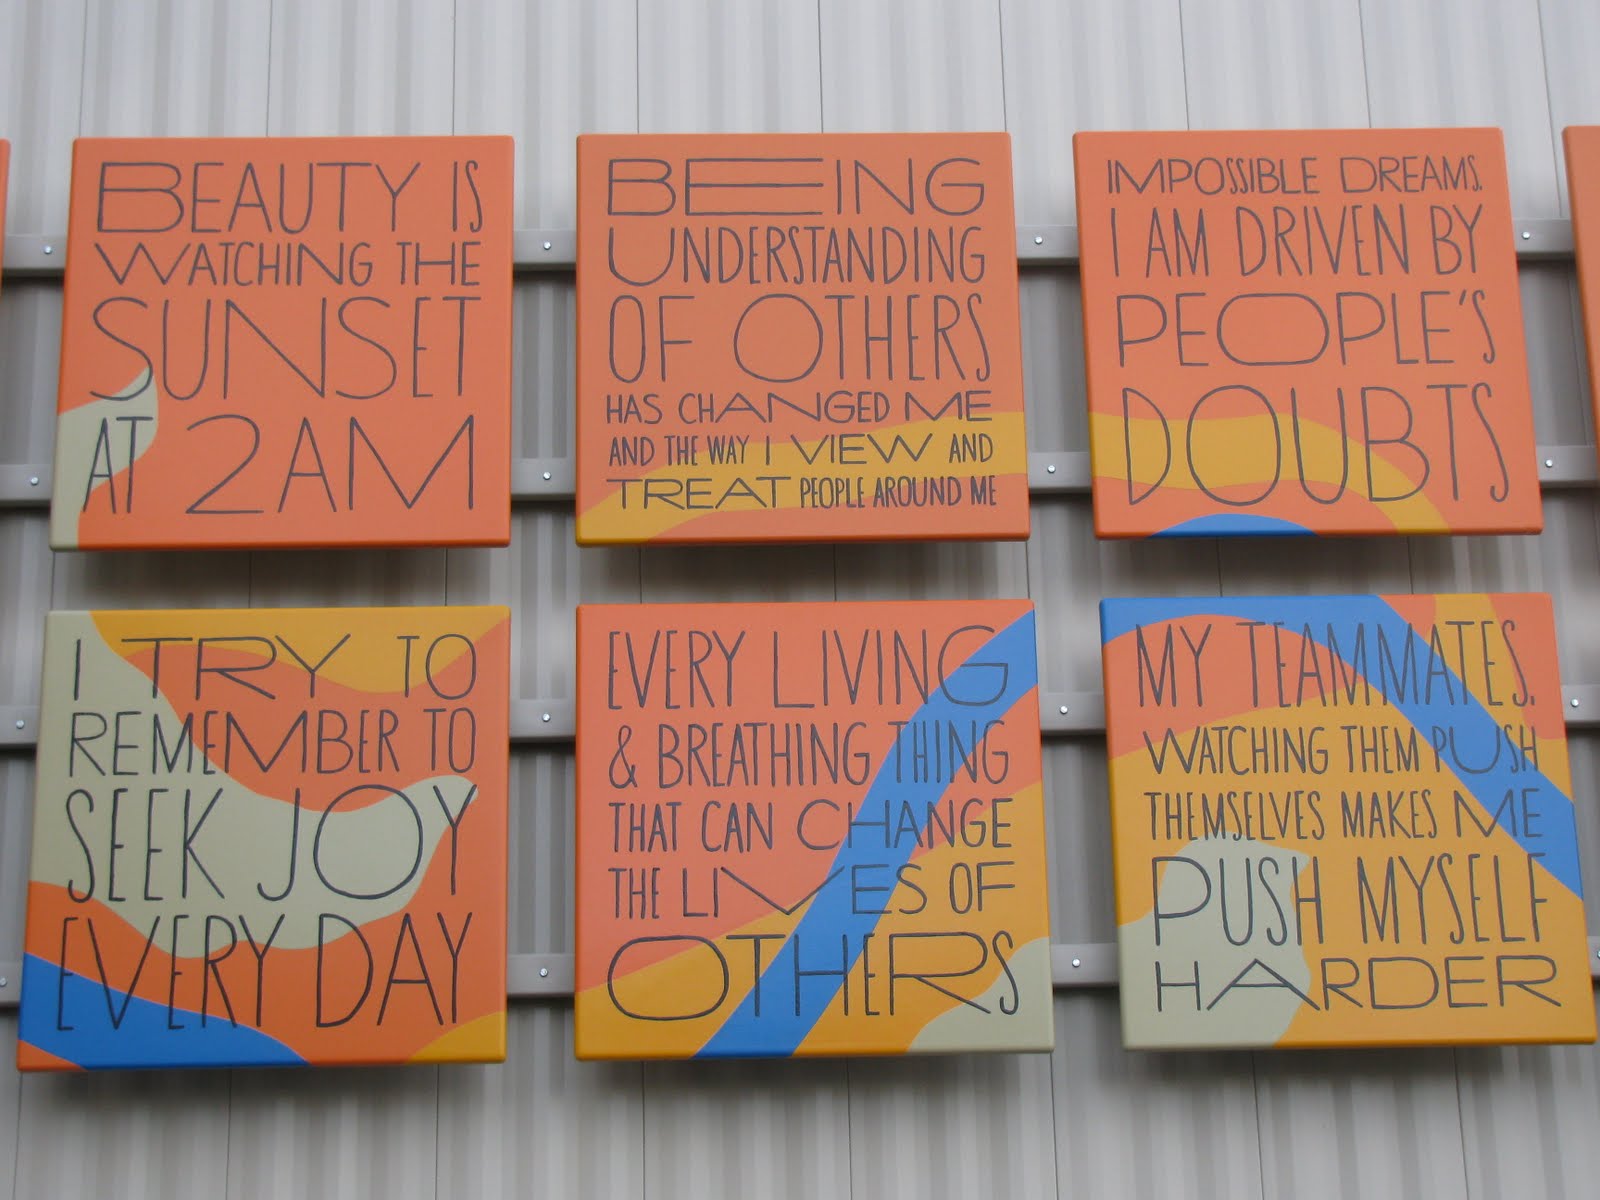 BEAUTY IS
WATCHING THE
SUNSET
AT 2AM
BEING
UNDERSTANDING
OF OTHERS
HAS CHANGED ME
AND THE WAY I VIEW AND
TREAT PEOPLE AROUND ME
IMPOSSIBLE DREAMS.
I AM DRIVEN BY
PEOPLE'S
DOUBTS
I TRY TO
REMEMBER TO
SEEK JOY
EVERY DAY
EVERY LIVING
& BREATHING THING
THAT CAN CHANGE
THE LIVES OF
OTHERS
MY TEAMMATES.
WATCHING THEM PUSH
THEMSELVES MAKES ME
PUSH MYSELF
HARDER